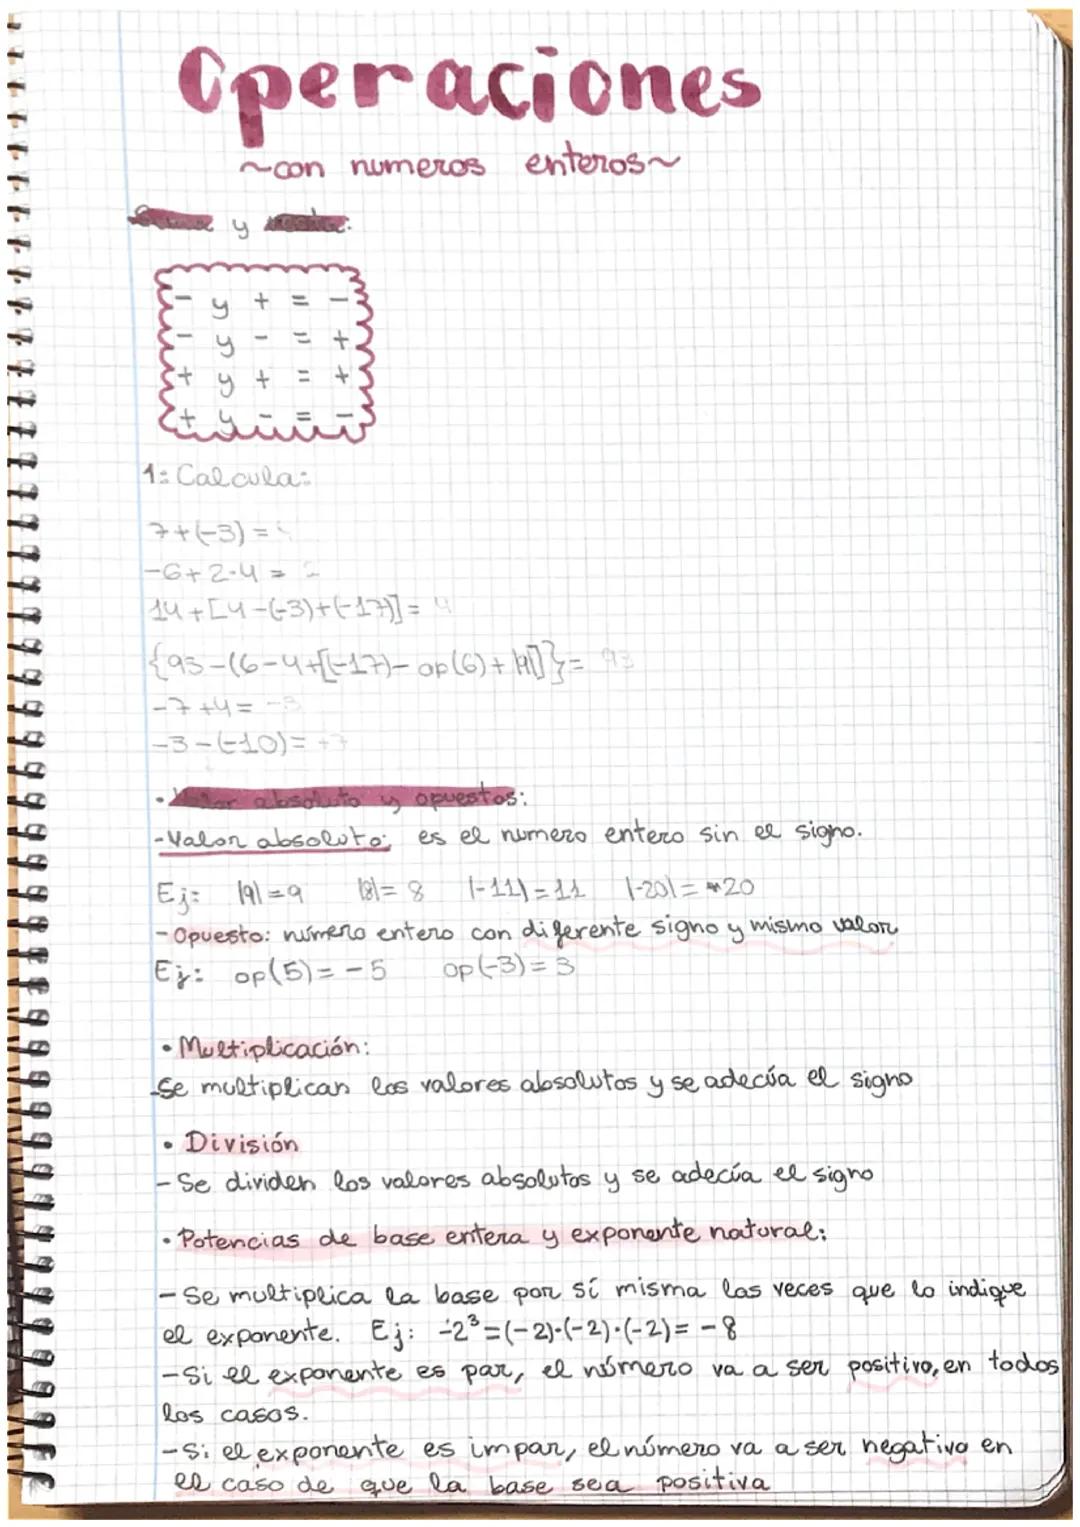 Operaciones
~con numeros enteros~
Suma y resta:
- y + = -
- y - = +
+ y + = +
+ y - = -
1: Calcula:
7+(-3) =
-6+2·4 = 2
14+[4-(-3)+(-17)] = 4
{93-(6-4+[(-17)-op(6)+|4|]} = 93
-7+4= -3
-3-(-10)= +7
• Valor absoluto y opuestos:
-Valor absoluto: es el numero entero sin el signo.
Ej: |9|=9 |8|= 8 |-11|=11 |-20|= 20
- Opuesto: número entero con diferente signo y mismo valor
Ej: op(5)= -5 op(-3)= 3
• Multiplicación:
-Se multiplican los valores absolutos y se adecúa el signo
• División
- Se dividen los valores absolutos y se adecúa el signo
• Potencias de base entera y exponente natural:
- Se multiplica la base por sí misma las veces que lo indique
el exponente. Ej: -2³=(-2)·(-2)·(-2)= -8
-Si el exponente es par, el número va a ser positivo, en todos
los casos.
-Si el exponente es impar, el número va a ser negativo en
el caso de que la base sea positiva